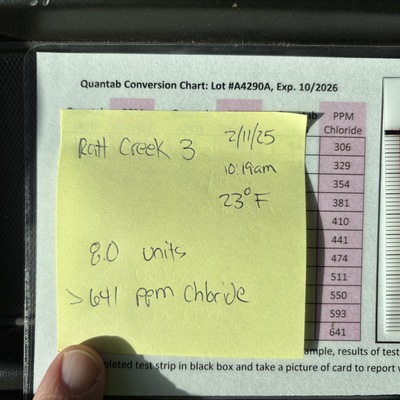 Quantab Conversion Chart: Lot #A4290A, Exp. 10/2026
PPM
Chloride
Ratt Creek 3
2/11/25
10:19am
23°F
8.0 units
>641 ppm Chloride
306
329
354
381
410
441
474
511
550
593
641
results of test
test strip in black box and take a picture of card to report